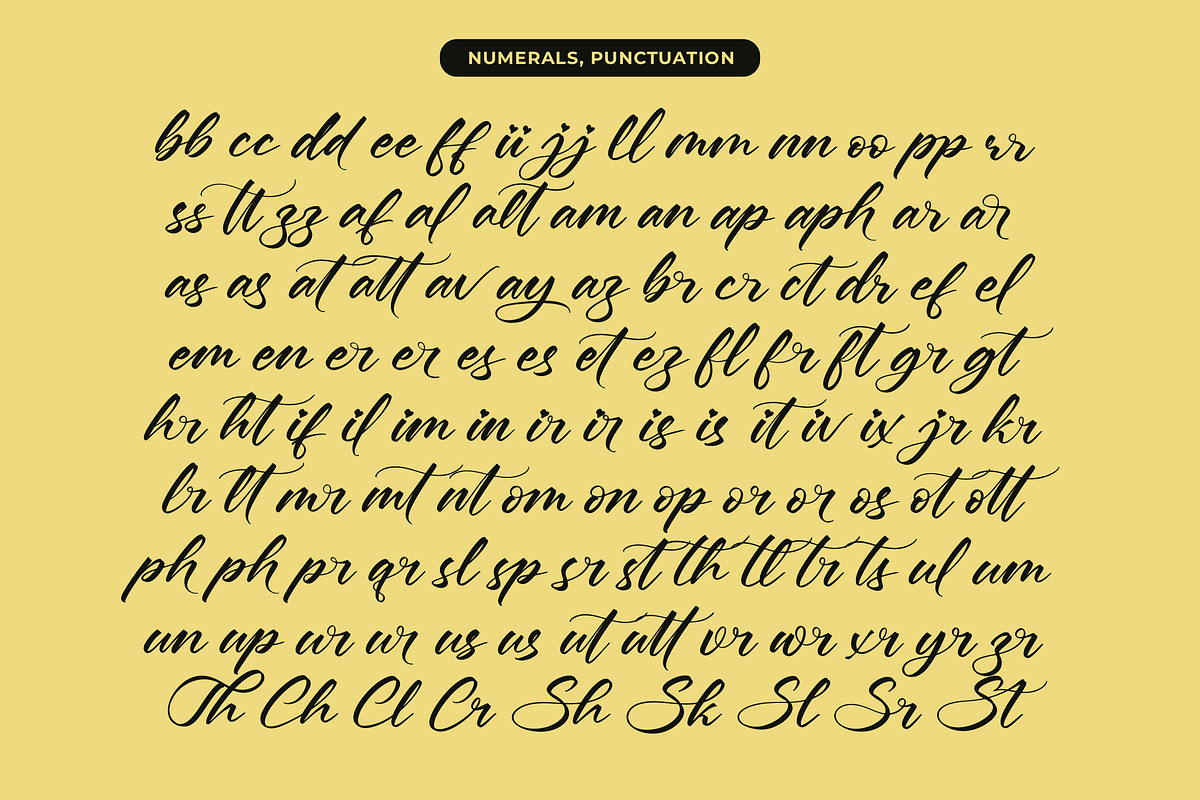 NUMERALS, PUNCTUATION
bb cc dd ee ff ii jj ll mm nn oo pp rr
ss tt zz af al alt am an ap aph ar ar
as as at att av ay az br cr ct dr ef el
em en er er es es et ez fl fr ft gr gt
hr ht if il im in ir ir is is it iv ix jr kr
lr lt mr mt nt om on op or or os ot ott
ph ph pr qr sl sp sr st th tl tr ts ul um
un up ur ur us us ut utt vr wr xr yr zr
Th Ch Cl Cr Sh Sk Sl Sr St